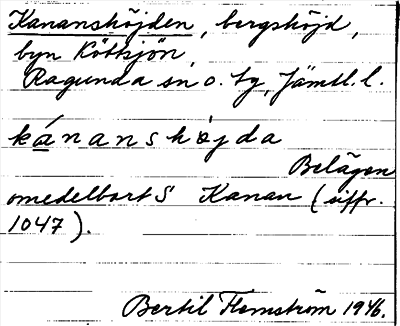 Kananshöjden, bergshöjd,
byn Köttsjön,
Ragunda sn o. tg, Jämtl. l.
kánanshøjda
Belägen
omedelbart S Kanan (siffr.
1047).
Bertil Flemström 1946.